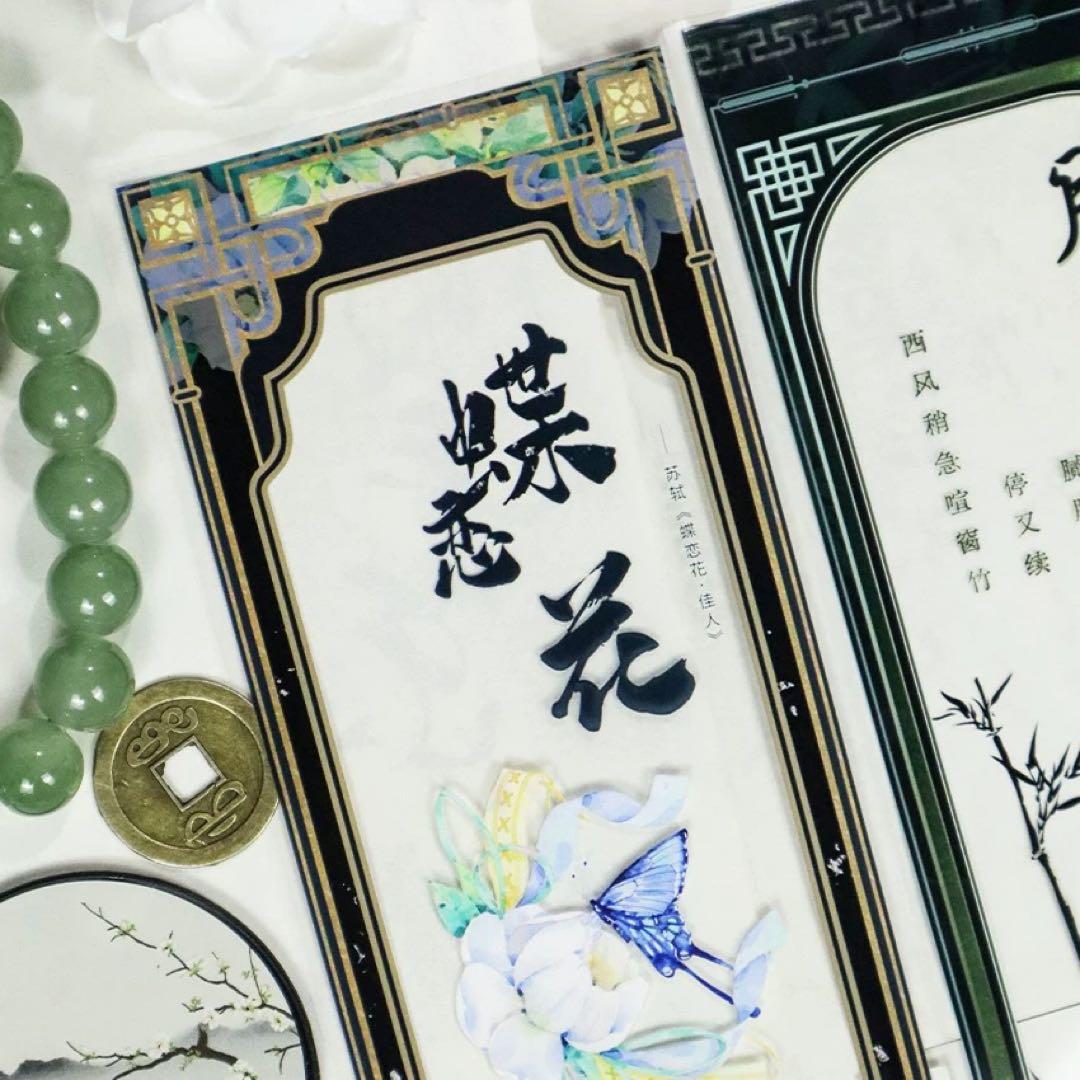 蝶恋花
——苏轼《蝶恋花·佳人》
西风稍急喧窗竹
停又续